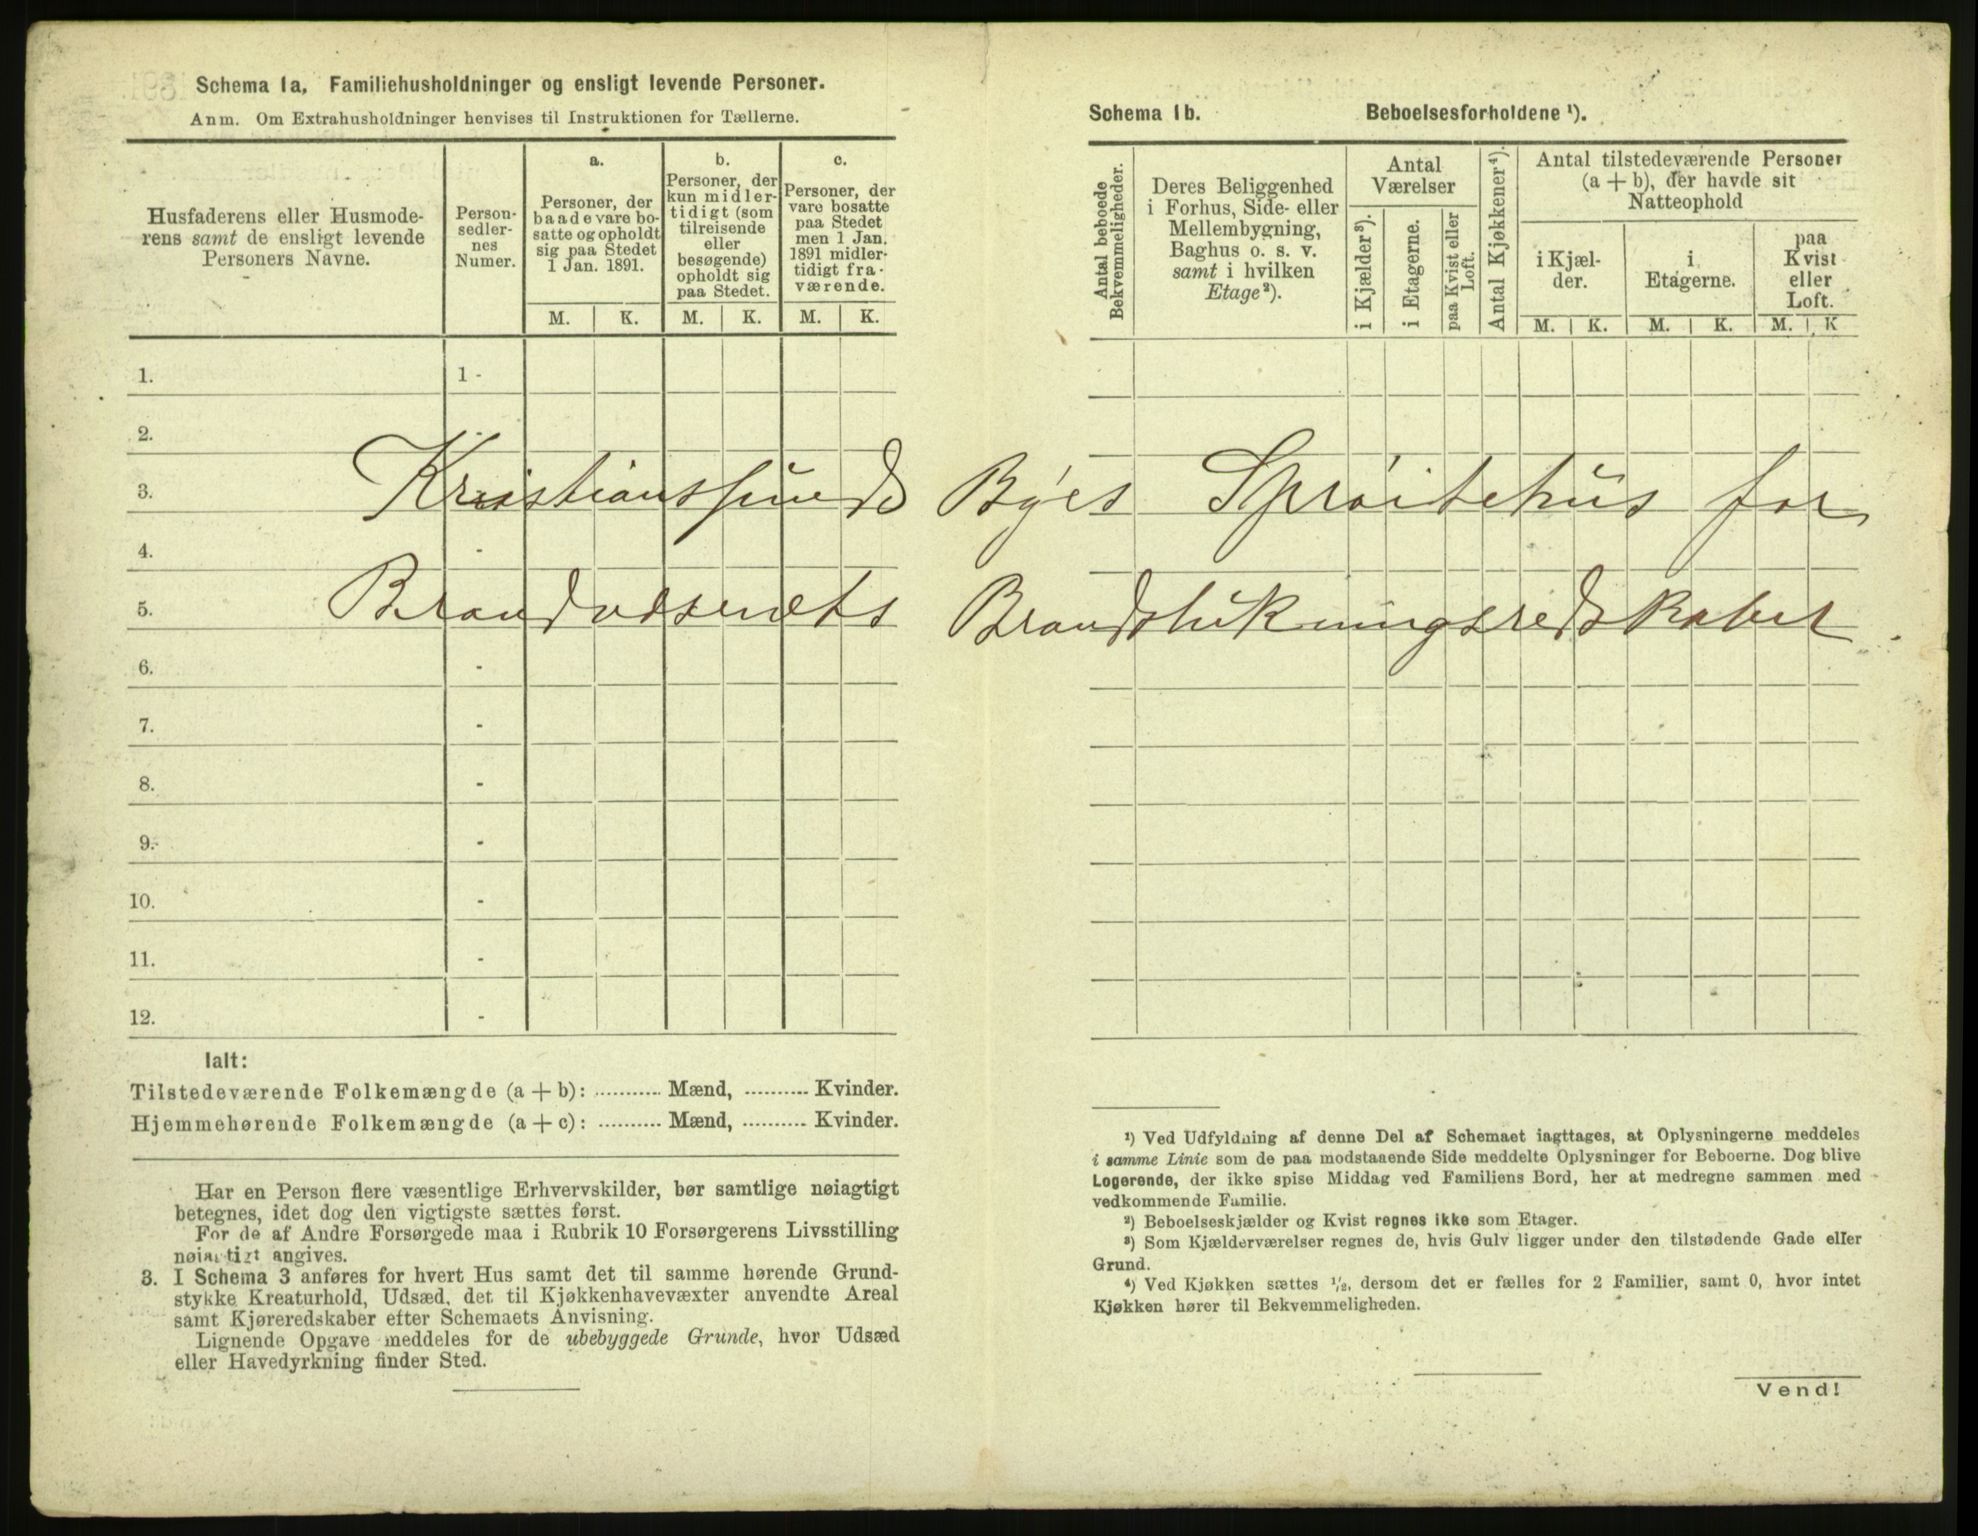 Schema 1a. Familiehusholdninger og ensligt levende Personer.
Anm. Om Extrahusholdninger henvises til Instruktionen for Tællerne.
Husfaderens eller Husmode-
rens samt de ensligt levende
Personers Navne.
Person-
sedler-
nes
Numer.
a.
Personer, der
baade vare bo-
satte og opholdt
sig paa Stedet
1 Jan. 1891.
b.
Personer, der
kun midler-
tidigt (som
tilreisende
eller
besøgende)
opholdt sig
paa Stedet.
c.
Personer, der
vare bosatte
paa Stedet
men 1 Jan.
1891 midler-
tidigt fra-
værende.
M. K. M. K. M. K.
1. 1 -
2. -
3.
4. -
5.
6. -
7. -
8. -
9. -
10. -
11. -
12. -
Kristianssunds Byes Sprøitehus for
Brandvæsenets Brandslukningsredskaber.
Ialt:
Tilstedeværende Folkemængde (a + b): ........... Mænd, ........... Kvinder.
Hjemmehørende Folkemængde (a + c): ........... Mænd, ........... Kvinder.
Har en Person flere væsentlige Erhvervskilder, bør samtlige nøiagtigt
betegnes, idet dog den vigtigste sættes først.
For de af Andre Forsørgede maa i Rubrik 10 Forsørgerens Livsstilling
nøiagtigt angives.
3. I Schema 3 anføres for hvert Hus samt det til samme hørende Grund-
stykke Kreaturhold, Udsæd, det til Kjøkkenhavevæxter anvendte Areal
samt Kjøreredskaber efter Schemaets Anvisning.
Lignende Opgave meddeles for de ubebyggede Grunde, hvor Udsæd
eller Havedyrkning finder Sted.
Schema 1b. Beboelsesforholdene ¹).
Antal beboede
Bekvemmeligheder.
Deres Beliggenhed
i Forhus, Side- eller
Mellembygning,
Baghus o. s. v.
samt i hvilken
Etage²).
Antal
Værelser
i Kjælder³).
i Etagerne.
paa Kvist eller
Loft.
Antal Kjøkkener⁴).
Antal tilstedeværende Personer
(a + b), der havde sit
Natteophold
i Kjæl-
der.
i
Etagerne.
paa
Kvist
eller
Loft.
M. K. M. K. M. K
¹) Ved Udfyldning af denne Del af Schemaet iagttages, at Oplysningerne meddeles
i samme Linie som de paa modstaaende Side meddelte Oplysninger for Beboerne. Dog blive
Logerende, der ikke spise Middag ved Familiens Bord, her at medregne sammen med
vedkommende Familie.
²) Beboelseskjælder og Kvist regnes ikke som Etager.
³) Som Kjælderværelser regnes de, hvis Gulv ligger under den tilstødende Gade eller
Grund.
⁴) Ved Kjøkken sættes ½, dersom det er fælles for 2 Familier, samt 0, hvor intet
Kjøkken hører til Bekvemmeligheden.
Vend!